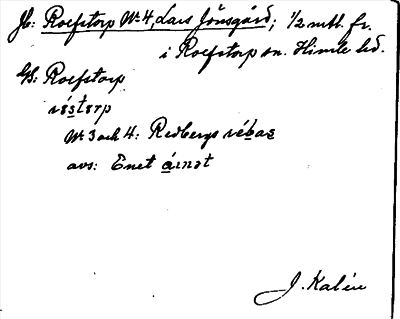 Jb: Roefstorp No 4, Lars Jönsgård; 1/2 mtt. fr.
i Roefstorp sn. Himle hd.
Gd: Roefstorp
No 3 och 4: Redbergs
avs: Enet
J. Kalén